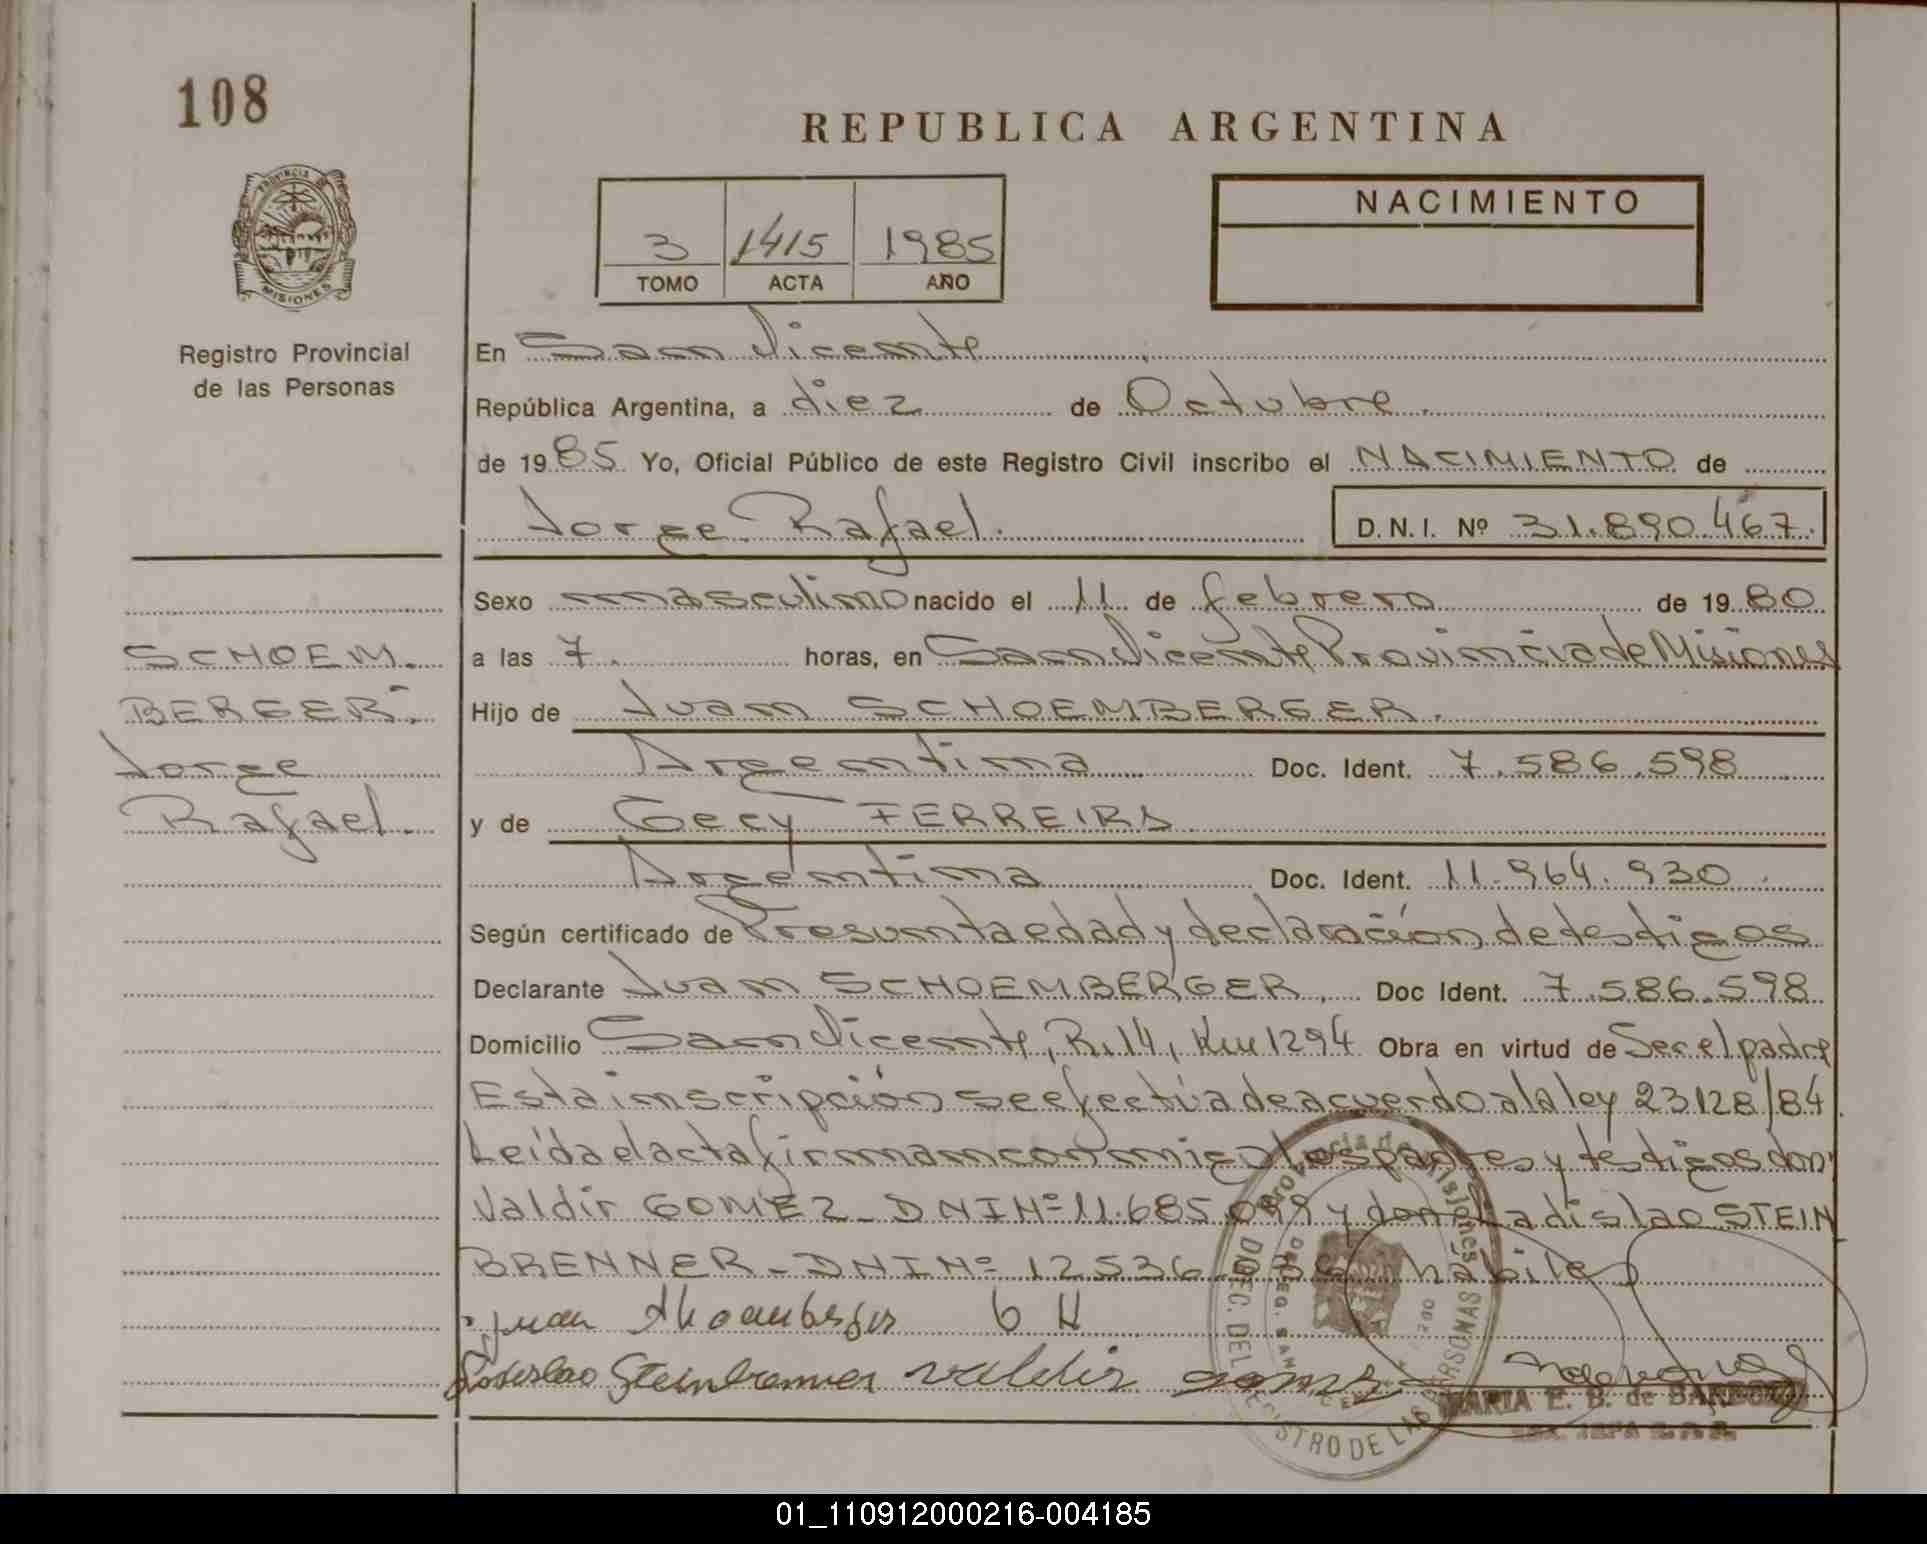 108
REPUBLICA ARGENTINA
PROVINCIA DE
MISIONES
Registro Provincial
de las Personas
3 1415 1985
TOMO ACTA AÑO
NACIMIENTO
En San Vicente
República Argentina, a diez de Octubre
de 1985 Yo, Oficial Público de este Registro Civil inscribo el NACIMIENTO de
Jorge Rafael. D.N.I. Nº 31.890.467.
Sexo masculino nacido el 11 de febrero de 1980
a las 7. horas, en San Vicente Provincia de Misiones
Hijo de Juan SCHOEMBERGER.
Argentina Doc. Ident. 7.586.598
y de Gecy FERREIRA
Argentina Doc. Ident. 11.964.930.
Según certificado de Presunta edad y declaración de testigos
Declarante Juan SCHOEMBERGER. Doc Ident. 7.586.598
Domicilio San Vicente, R.14, Km 1294 Obra en virtud de Ser el padre
Esta inscripción se efectúa de acuerdo a la ley 23128/84.
Leída el acta firman conmigo las partes y testigos don
Valdir GOMEZ - DNI Nº 11.685.099 y don Ladislao STEIN
BRENNER - DNI Nº 12536 hábiles
SCHOEM.
BERGER.
Jorge
Rafael.
Juan
Steinbrenner Valdir
Provincia de Misiones
DIREC. DEL REGISTRO DE LAS PERSONAS
MARIA E. B. de BARBOZA
01_110912000216-004185